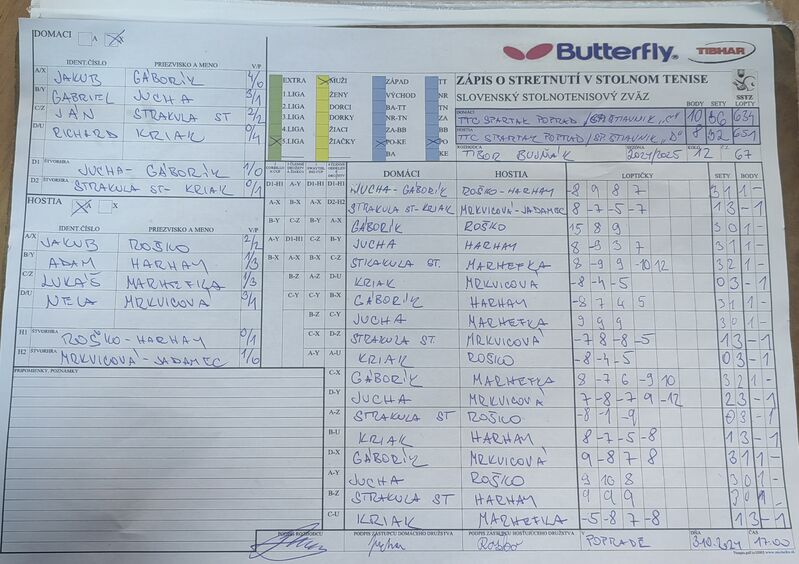 DOMÁCI A X
Butterfly TIBHAR
ZÁPIS O STRETNUTÍ V STOLNOM TENISE
SLOVENSKÝ STOLNOTENISOVÝ ZVÄZ
SSTZ
IDENT.ČÍSLO PRIEZVISKO A MENO V/P
A/X JAKUB GÁBORÍK 4/0
B/Y GABRIEL JUCHA 3/1
C/Z JÁN STRAKULA ST 2/2
D/U RICHARD KRIAK 0/4
D1 ŠTVORHRA JUCHA-GÁBORÍK 1/0
D2 ŠTVORHRA STRAKULA ST-KRIAK 0/1
EXTRA MUŽI ZÁPAD TT
1.LIGA ŽENY VÝCHOD NR
2.LIGA DORCI BA-TT TN
3.LIGA DORKY TN-NR ZA
4.LIGA ŽIACI ZA-BB BB
5.LIGA ŽIAČKY PO-KE PO
BA KE
DOMÁCI BODY SETY LOPTY
TTC SPARTAK POPRAD 10 36 634
HOSTIA
TTC SPARTAK POPRAD 8 32 651
ROZHODCA TIBOR BUJŇÁK SEZÓNA 2024/2025 KOLO 12 Č. 67
HOSTIA X A
IDENT.ČÍSLO PRIEZVISKO A MENO V/P
A/X JAKUB ROŠKO 2/2
B/Y ADAM HARHAY 1/3
C/Z LUKÁŠ MARHEFKA 1/3
D/U NELA MRKVICOVÁ 3/1
H1 ŠTVORHRA ROŠKO-HARHAY 0/1
H2 ŠTVORHRA MRKVICOVÁ-JADAMEC 1/0
PRIPOMIENKY, POZNÁMKY
DOMÁCI HOSTIA LOPTIČKY SETY BODY
D1-H1 A-Y D1-H1 D1-H1 JUCHA-GÁBORÍK ROŠKO-HARHAY -8 9 8 7 3 1 1 -
A-X B-X A-X D2-H2 STRAKULA ST-KRIAK MRKVICOVÁ-JADAMEC 8 -7 -5 -7 1 3 - 1
B-Y C-Z B-Y A-X GÁBORÍK ROŠKO 15 8 9 3 0 1 -
A-Y D1-H1 C-Z B-Y JUCHA HARHAY -8 9 3 7 3 1 1 -
B-X A-X B-X C-Z STRAKULA ST. MARHEFKA -8 -9 9 10 12 3 2 1 -
B-Z A-Z D-U KRIAK MRKVICOVÁ -8 -4 -5 0 3 - 1
C-Y C-Y B-X GÁBORÍK HARHAY -8 7 4 5 3 1 1 -
B-Z C-Y JUCHA MARHEFKA 9 9 9 3 0 1 -
C-X D-Z STRAKULA ST MRKVICOVÁ -7 8 -8 -5 1 3 - 1
A-Y A-U KRIAK ROŠKO -8 -4 -5 0 3 - 1
C-X GÁBORÍK MARHEFKA 8 -7 6 -9 10 3 2 1 -
D-Y JUCHA MRKVICOVÁ 7 -8 -7 9 -12 2 3 - 1
A-Z STRAKULA ST ROŠKO -8 -1 -9 0 3 - 1
B-U KRIAK HARHAY -8 -7 -5 -8 1 3 - 1
D-X GÁBORÍK MRKVICOVÁ 9 -8 7 8 3 1 1 -
A-Y JUCHA ROŠKO 9 10 8 3 0 1 -
B-Z STRAKULA ST HARHAY 9 9 9 3 0 1 -
C-U KRIAK MARHEFKA -5 -8 7 -8 1 3 - 1
PODPIS ROZHODCU PODPIS ZÁSTUPCU DOMÁCEHO DRUŽSTVA PODPIS ZÁSTUPCU HOSŤUJÚCEHO DRUŽSTVA V POPRADE DŇA 3.10.2024 ČAS 17:00